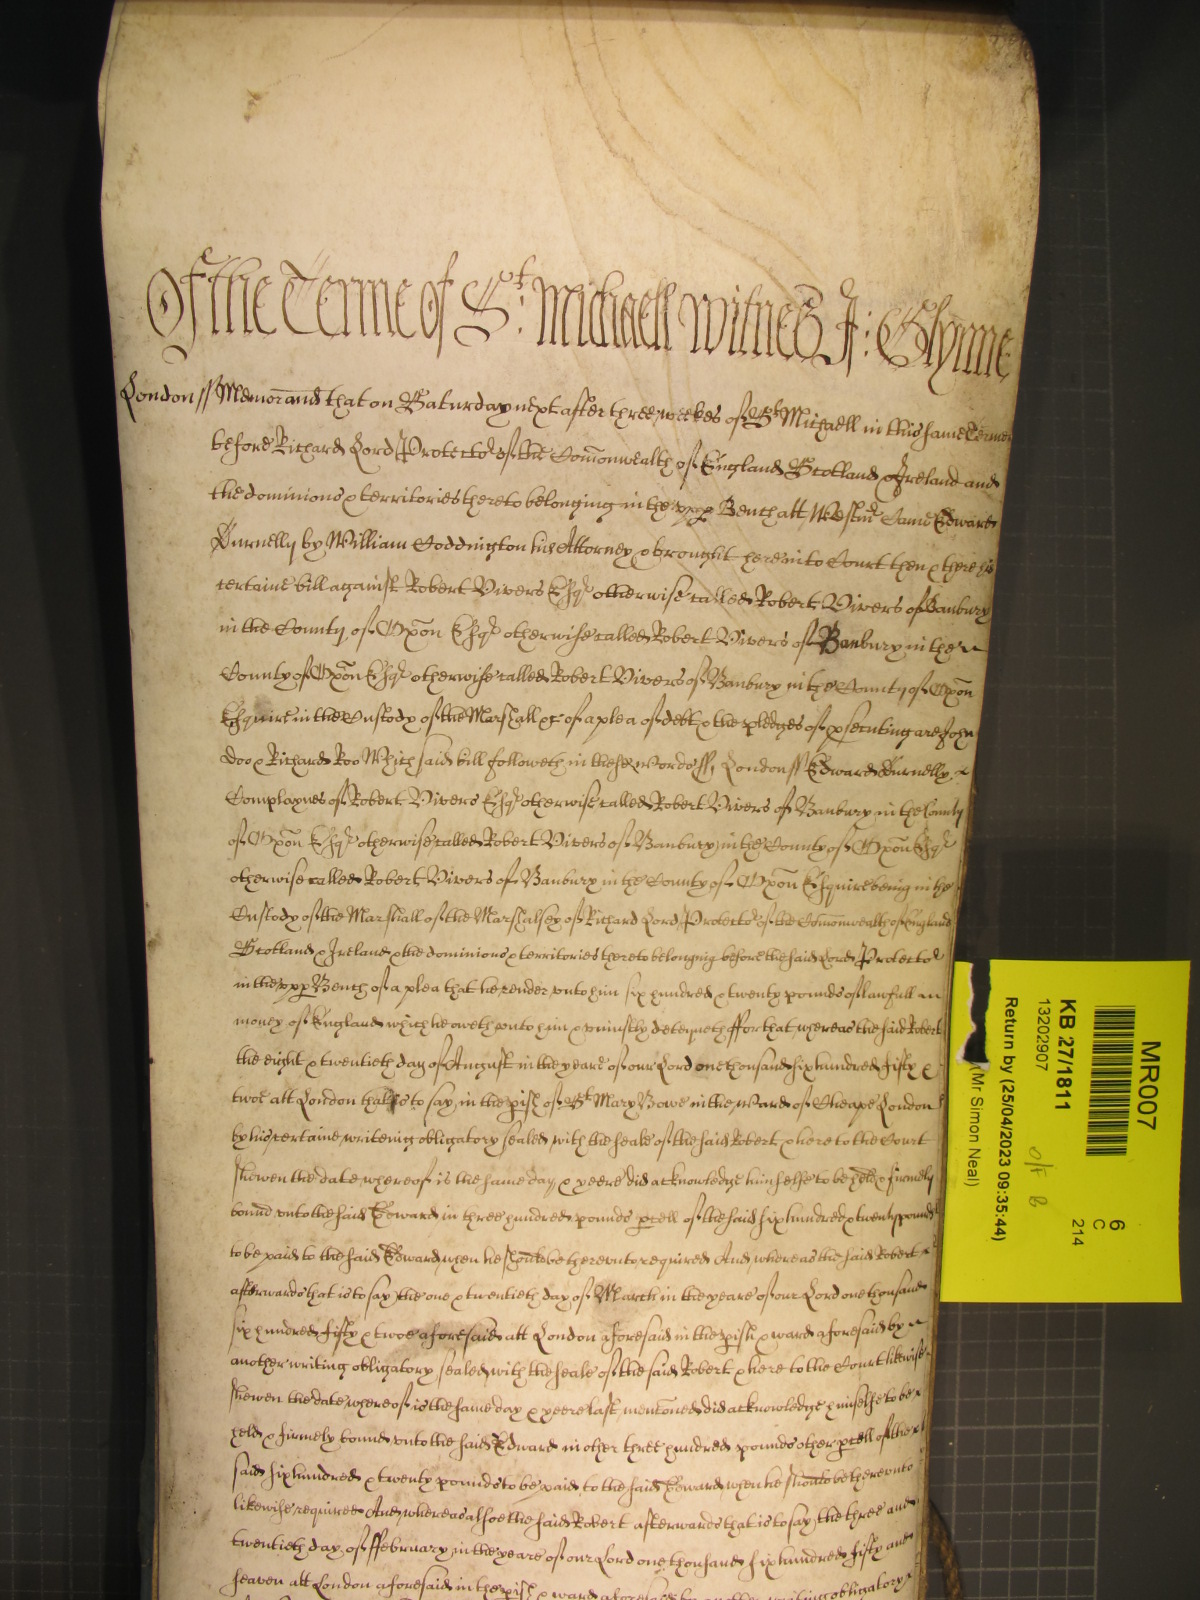 Of the Terme of St: Michaell Witnes J: Glynne
London ss Memorand that on Saturday next after three weekes of St Michaell in this same Terme
before Richard Lord Protector of the Comonwealth of England Scotland & Ireland and
the dominions & territories thereto belonging in the upp Bench att Westmr Came Edward
by William Coddington his Attorney & brought here into Court then & there his
certaine bill against Robert Vivers Esqr otherwise called Robert Vivers of Banbury
in the County of Oxon Esqr otherwise called Robert Vivers of Banbury in the
County of Oxon Esqr otherwise called Robert Vivers of Banbury in the County of Oxon
Esquire in the Custody of the Marshall &c of a plea of debt & the pledges of psecuting are John
Doo & Richard Roo Which said bill followeth in these words ss London ss Edward
Complaynes of Robert Vivers Esqr otherwise called Robert Vivers of Banbury in the County
of Oxon Esqr otherwise called Robert Vivers of Banbury in the County of Oxon Esqr
otherwise called Robert Vivers of Banbury in the County of Oxon Esquire being in the
Custody of the Marshall of the Marshalsey of Richard Lord Protector of the Comonwealth of England
Scotland & Ireland & the dominions & territories thereto belonging before the said Lord Protector
in the upp Bench of a plea that he render unto him six hundred & twenty pounds of lawfull
money of England which he oweth unto him & uniustly deteyneth ffor that whereas the said Robert
the eight & twentieth day of August in the yeare of our Lord one thousand six hundred fifty &
twoe att London that is to say in the pish of St Mary Bowe in the Ward of Cheape London
by his certaine writeing obligatory sealed with the seale of the said Robert & here to the Court
shewen the date whereof is the same day & yeere did acknowledge himselfe to be held & firmely
bound unto the said Edward in three hundred pounds pcell of the said six hundred & twenty pounds
to be paid to the said Edward when he should be thereunto required And whereas the said Robert
afterwards that is to say the one & twentieth day of March in the yeare of our Lord one thousand
six hundred fifty & twoe aforesaid att London aforesaid in the pish & ward aforesaid by
another writing obligatory sealed with the seale of the said Robert & here to the Court likewise
shewen the date whereof is the same day & yeere last mentoned did acknowledge himselfe to be
held & firmely bound unto the said Edward in other three hundred pounds other pcell of the
said six hundred & twenty pounds to be paid to the said Edward when he should be thereunto
likewise required And whereas alsoe the said Robert afterwards that is to say the three and
twentieth day of ffebruary in the yeare of our Lord one thousand six hundred fifty and
seaven att London aforesaid in the pish & ward aforesaid by another writing obligatory
MR007
6
C
214
KB 27/1811
13202907
Return by (25/04/2023 09:35:44)
(Mr Simon Neal)